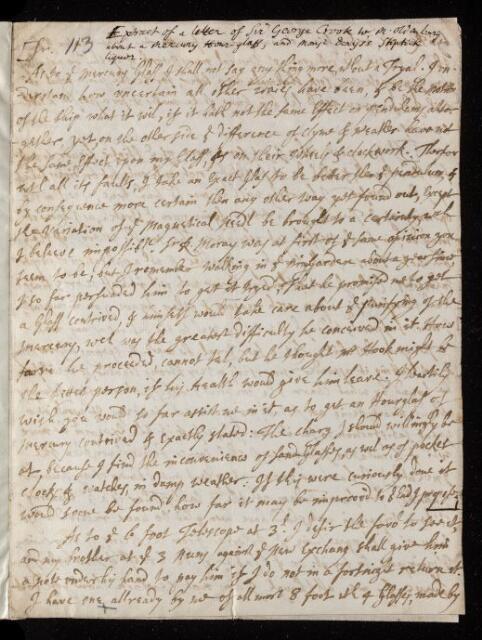 Extract of a letter of Sir George Crook to M. Oldenburg
about a Mercury Hour-glass, and mons. Denys's Styptick
liquor.
Sr. 113
As to ye Mercury Glass I shall not say any thing more about a Tryal. I un-
derstand how uncertain all other waies have been, & be the motion
of the ship what it wil, if it hath not the same Effect on
yet on the other side ye difference of Clyme & Weather have not
the same Effect upon my Glass, as on their & clockwork. Therfor
wth all its faults, I take an Exact Glass to be better then ye pendulum, &
by consequence more certain then any other way yet found out, Except
ye Variation of ye Magnetical needle be brought to a certainty, wch
I believe impossible. Sr. R. Moray was at first of ye same opinion you
seem to be, but I remember walking in ye about a year since
I so far perswaded him to get it tryed, that he promised me to get
a Glass contrived & himself would take care about ye purifying of the
mercury, wch was the greatest difficulty he conceived in it. How
he proceeded, cannot tel, but he thought Mr Hook might be
the fittest person, if his Health would give him leave. I hartily
wish you would so far assist me in it, as to get an Hourglass of
mercury contrived & exactly stated: The charg I should willingly be
at, because I find the inconvenience of sand Glasses, as wel as of pocket
clocks & watches in damp weather. If this were curiously done it
would soone be found how far it may be improved to ye end proposed.
As to ye 6 foot Telescope at 3£. I desire the favor to see it
and my brother at ye 3 Nuns against ye New Exchang shall give him
a note under his hand to pay him if I do not in a fortnight return it.
I have one allready by me of allmost 8 foot wth 4 Glasses, made by